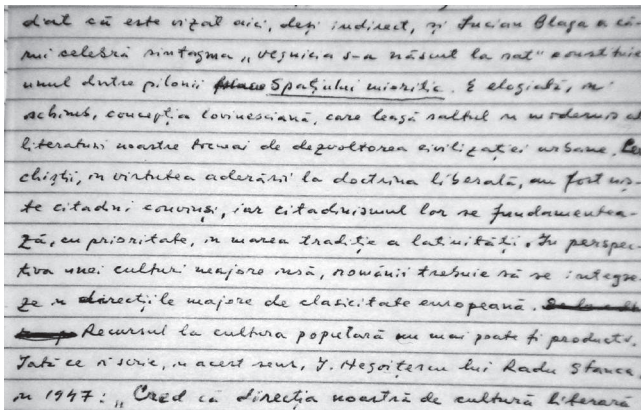 dat că este vizat aici, deși indirect, și Lucian Blaga a că-
rui celebră sintagmă „veșnicia s-a născut la sat” constituie
unul dintre pilonii Spațiului mioritic. E elogiată, în
schimb, concepția lovinesciană, care leagă saltul în modernis al
literaturii noastre tocmai de dezvoltarea civilizației urbane.
chiștii, în virtutea aderării la doctrina liberală, au fost niș-
te citadini convinși, iar citadinismul lor se fundamentea-
ză, cu prioritate, în marea tradiție a latinității. În perspec-
tiva unei culturi majore însă, românii trebuie să se integre-
ze în direcțiile majore de clasicitate europeană.
Recursul la cultura populară nu mai poate fi productiv.
Iată ce îi scrie, în acest sens, I. Negoițescu lui Radu Stanca,
în 1947: „Cred că direcția noastră de cultură literară